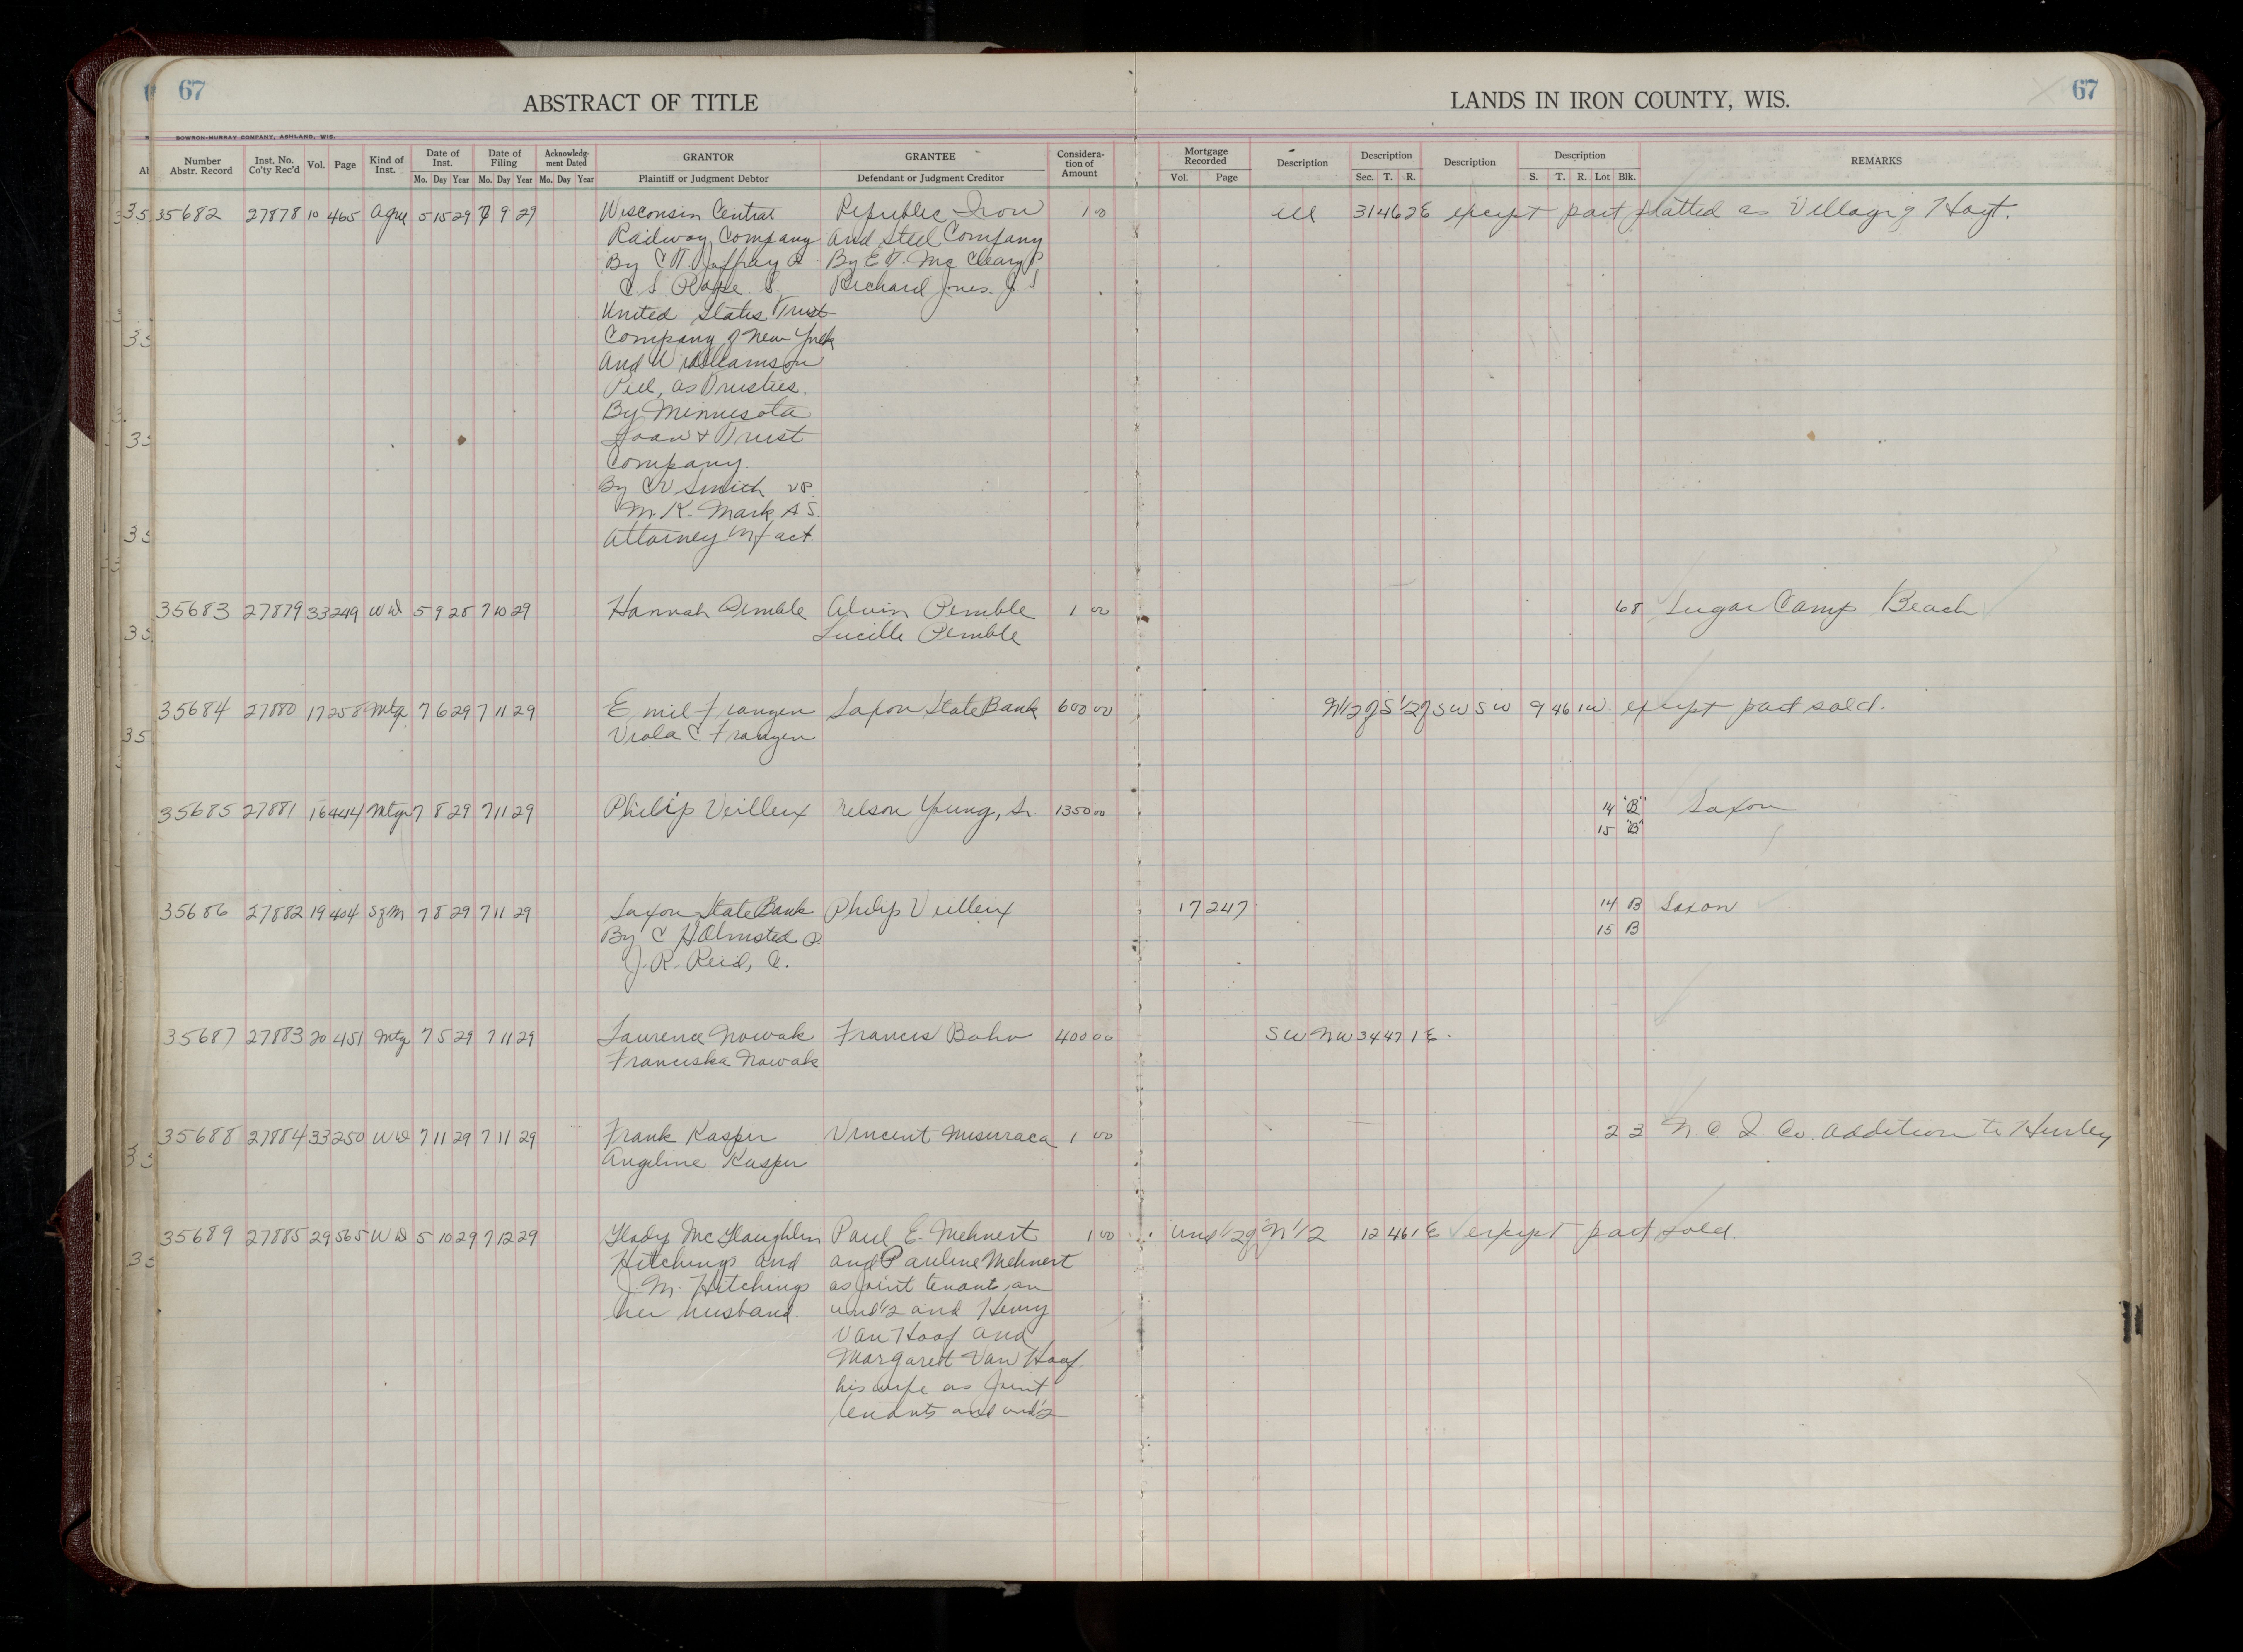 67
ABSTRACT OF TITLE
LANDS IN IRON COUNTY, WIS.
67
BOWRON-MURRAY COMPANY, ASHLAND, WIS.
Number Abstr. Record Inst. No. Co'ty Rec'd Vol. Page Kind of Inst. Date of Inst. Date of Filing Acknowledgment Dated GRANTOR GRANTEE Consideration of Amount Mortgage Recorded Description Description Description Description REMARKS
Mo. Day Year Mo. Day Year Mo. Day Year Plaintiff or Judgment Debtor Defendant or Judgment Creditor Vol. Page Sec. T. R. S. T. R. Lot Blk.
35682 27878 10 465 Agre 5 15 29 7 9 29 Wisconsin Central Republic Iron 1 00 all 31 46 2E except part platted as Village of Hoyt.
Railway Company and Steel Company
By C.T. Jaffray P By E.T. Mc Cleary P
C S Richard Jones. Jr S
United States Trust
Company of New York
And Williamson
Pell, as Trustees.
By Minnesota
Loan & Trust
Company.
By C V Smith VP.
M. K. Mark A S.
Attorney in fact.
35683 27879 33 249 WD 5 9 28 7 10 29 Hannah Pemble Alvin Pemble 1 00 68 Sugar Camp Beach
Lucille Pemble
35684 27880 17 258 Mtg 7 6 29 7 11 29 Emil Franzen Saxon State Bank 600 00 N1/2 of S1/2 of SW SW 9 46 1W. except part sold.
Viola C Franzen
35685 27881 16 444 Mtg 7 8 29 7 11 29 Philip Veilleux Nelson Young, Sr. 1350 00 14 "B" Saxon
15 "B"
35686 27882 19 404 S of M 7 8 29 7 11 29 Saxon State Bank Philip Veilleux 17 247 14 B Saxon
By C H Olmsted P 15 B
J. R. Reid, C.
35687 27883 20 451 Mtg 7 5 29 7 11 29 Laurence Nowak Francis Bohn 400 00 SW NW 34 47 1 E.
Franciska Nowak
35688 27884 33 250 WD 7 11 29 7 11 29 Frank Kasper Vincent Misuraca 1 00 2 3 N. C I Co. Addition to Hurley
Angeline Kasper
35689 27885 29 565 WD 5 10 29 7 12 29 Glady McGlaughlin Paul E. Mehnert 1 00 und 1/2 of N 1/2 12 46 1 E except part sold.
Hitchings and and Pauline Mehnert
J. M. Hitchings as joint tenants, an
her husband. und 1/2 and Henry
Van Hoof and
Margaret Van Hoof
his wife as joint
tenants and und 1/2